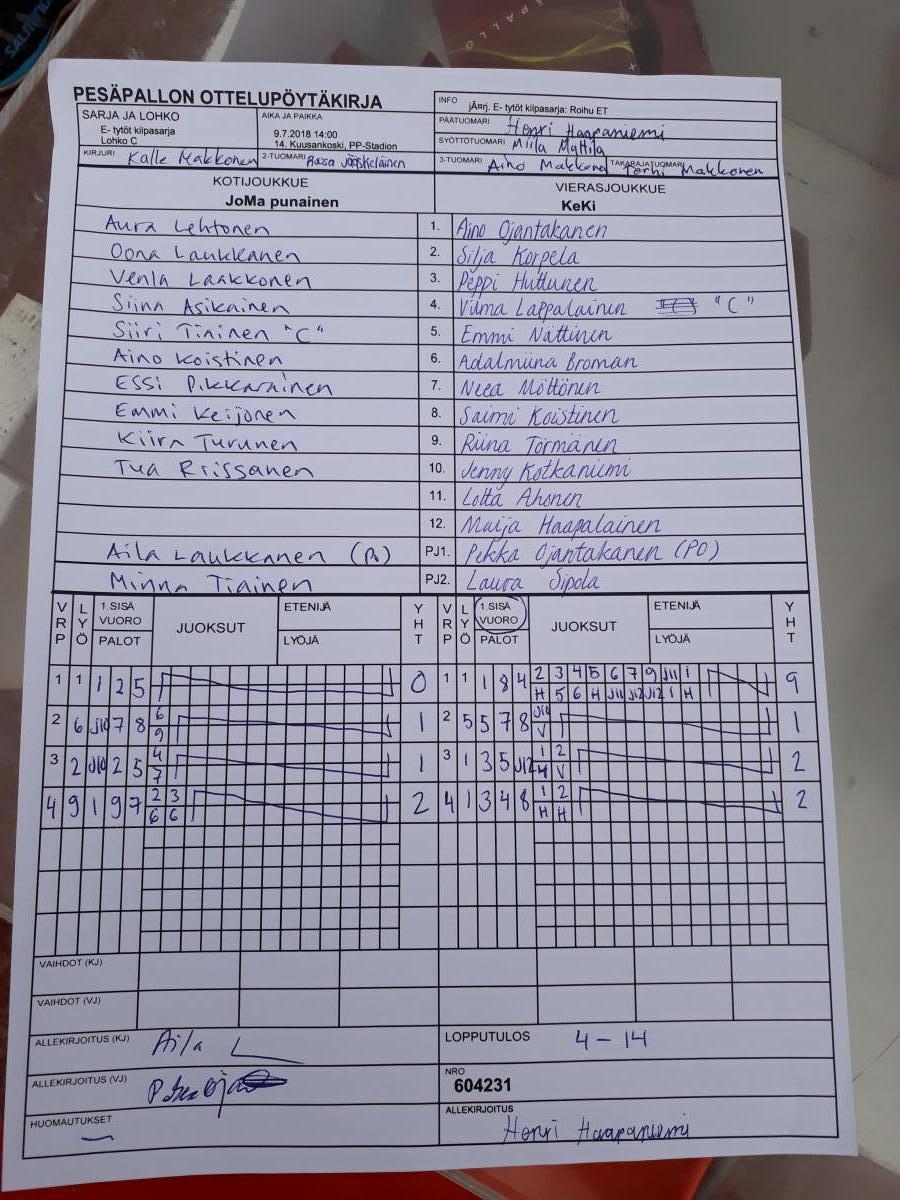 PESÄPALLON OTTELUPÖYTÄKIRJA
INFO jÃ¤rj. E- tytöt kilpasarja: Roihu ET
SARJA JA LOHKO
E- tytöt kilpasarja
Lohko C
AIKA JA PAIKKA
9.7.2018 14:00
14. Kuusankoski, PP-Stadion
PÄÄTUOMARI Henri Haapaniemi
SYÖTTÖTUOMARI Miila Mattila
KIRJURI Kalle Makkonen 2-TUOMARI Rasa Jääskeläinen 3-TUOMARI Aino Makkonen TAKARAJATUOMARI Terhi Makkonen
KOTIJOUKKUE VIERASJOUKKUE
JoMa punainen KeKi
Aura Lehtonen 1. Aino Ojantakanen
Oona Laukkanen 2. Silja Korpela
Venla Laakkonen 3. Peppi Huttunen
Siina Asikainen 4. Vilma Lappalainen "C"
Siiri Tiainen "C" 5. Emmi Nättinen
Aino Koistinen 6. Adalmiina Broman
Essi Pikkarainen 7. Neea Möttönen
Emmi Keijonen 8. Saimi Koistinen
Kiira Turunen 9. Riina Törmänen
Tua Riissanen 10. Jenny Kotkaniemi
11. Lotta Ahonen
12. Maija Haapalainen
Aila Laukkanen (Po) PJ1. Pekka Ojantakanen (PO)
Minna Tiainen PJ2. Laura Sipola
VRP LYÖ 1.SISÄ VUORO PALOT JUOKSUT ETENIJÄ LYÖJÄ YHT VRP LYÖ 1.SISÄ VUORO PALOT JUOKSUT ETENIJÄ LYÖJÄ YHT
1 1 1 2 5 0 1 1 1 8 4 2 3 4 5 6 7 9 J11 1 9
H 5 6 H J11 J12 J12 1 H
2 6 J10 7 8 6 1 2 5 5 7 8 J10 1
9 V
3 2 J10 2 5 4 1 3 1 3 5 J12 1 2 2
7 4 V
4 9 1 9 7 2 3 2 4 1 3 4 8 1 2 2
6 6 H H
VAIHDOT (KJ)
VAIHDOT (VJ)
ALLEKIRJOITUS (KJ) Aila L LOPPUTULOS 4 - 14
ALLEKIRJOITUS (VJ) NRO
604231
HUOMAUTUKSET — ALLEKIRJOITUS
Henri Haapaniemi